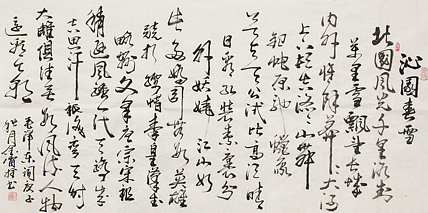 沁園春雪
北國風光千里冰封
萬里雪飄望長城
内外惟餘莽莽大河
上下頓失滔滔山舞
銀蛇原馳蠟象
欲與天公試比高須晴
日看紅裝素裹分
外妖嬈江山如
此多嬌引無數英雄
競折腰惜秦皇漢武
略輸文采唐宗宋祖
稍遜風騷一代天驕成
吉思汗只識彎弓射
大雕俱往矣數風流人物
還看今朝
毛澤東詞庚子
月 書